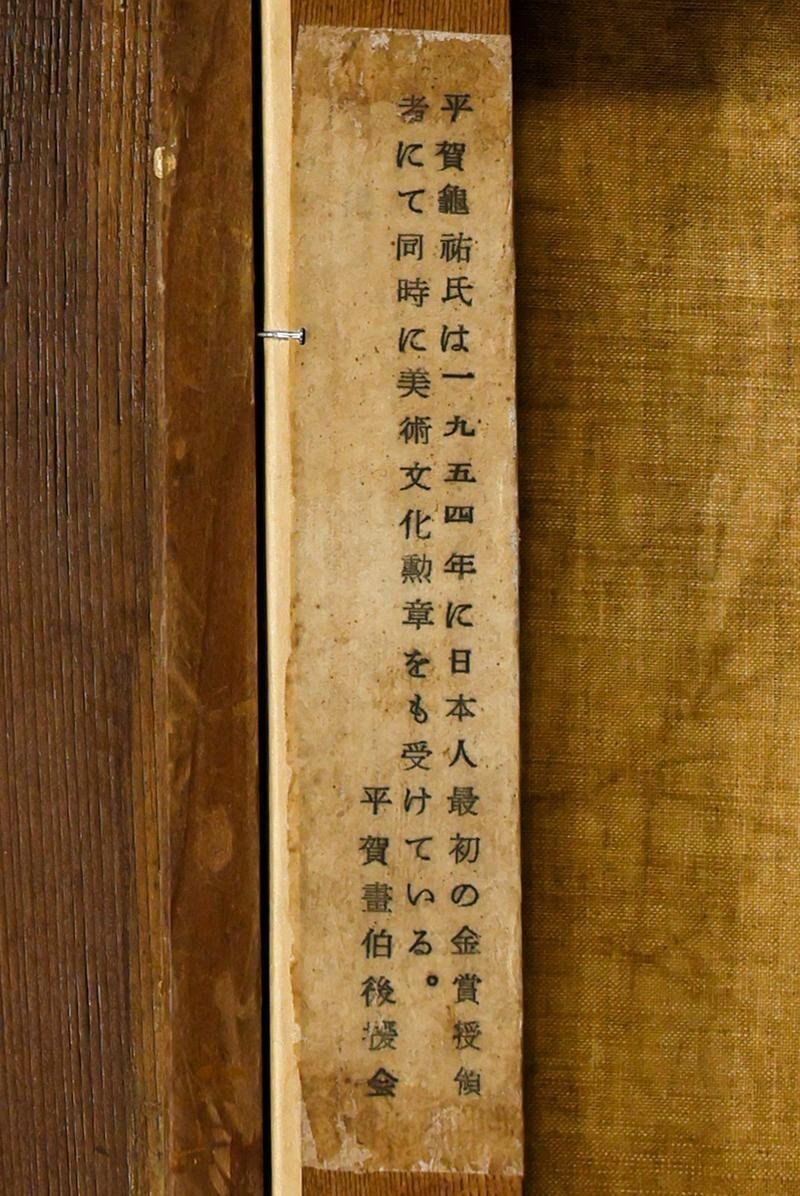 平賀龜祐氏は一九五四年に日本人最初の金賞授領
者にて同時に美術文化勲章をも受けている。
平賀畫伯後援会